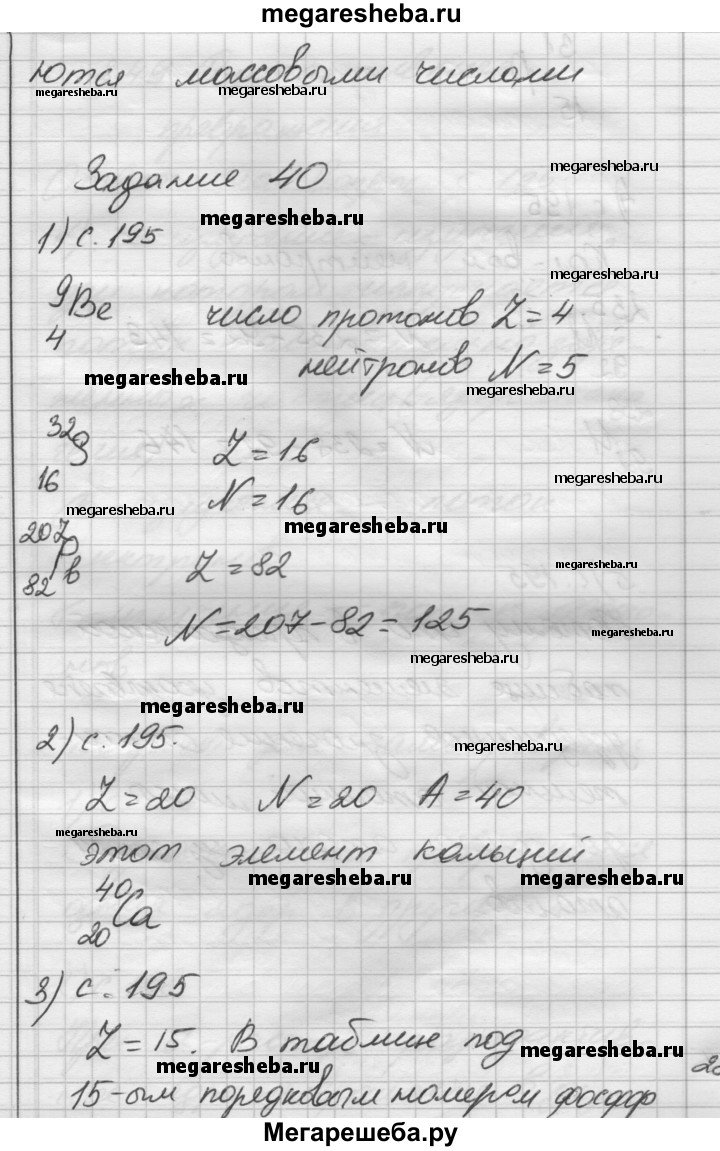 megaresheba.ru
ются массовыми числами
megaresheba.ru megaresheba.ru
Задание 40
megaresheba.ru
megaresheba.ru
1) с. 195
megaresheba.ru
9
4 Be число протонов Z = 4
нейтронов N = 5
megaresheba.ru
megaresheba.ru
32
16 S Z = 16
megaresheba.ru
N = 16
megaresheba.ru
megaresheba.ru
207
82 Pb Z = 82
megaresheba.ru
N = 207 - 82 = 125
megaresheba.ru
megaresheba.ru
megaresheba.ru
2) с. 195.
megaresheba.ru
Z = 20 N = 20 A = 40
megaresheba.ru
этот элемент кальций
megaresheba.ru megaresheba.ru
40
20 Ca
3) с. 195
Z = 15. В таблице под
megaresheba.ru
megaresheba.ru
15-ым порядковым номером фосфор
Мегарешеба.ру